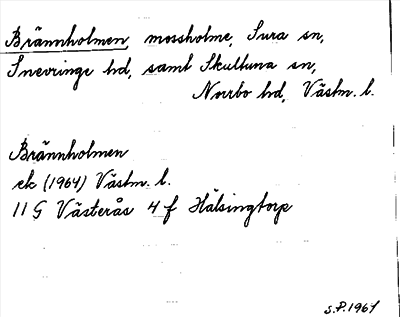 Brännholmen, mossholme, Sura sn,
Snevringe hd, samt Skultuna sn,
Norrbo hd, Västm. l.
Brännholmen
ek (1964) Västm. l.
11 G Västerås 4 f Hälsingtorp
S.P. 1967